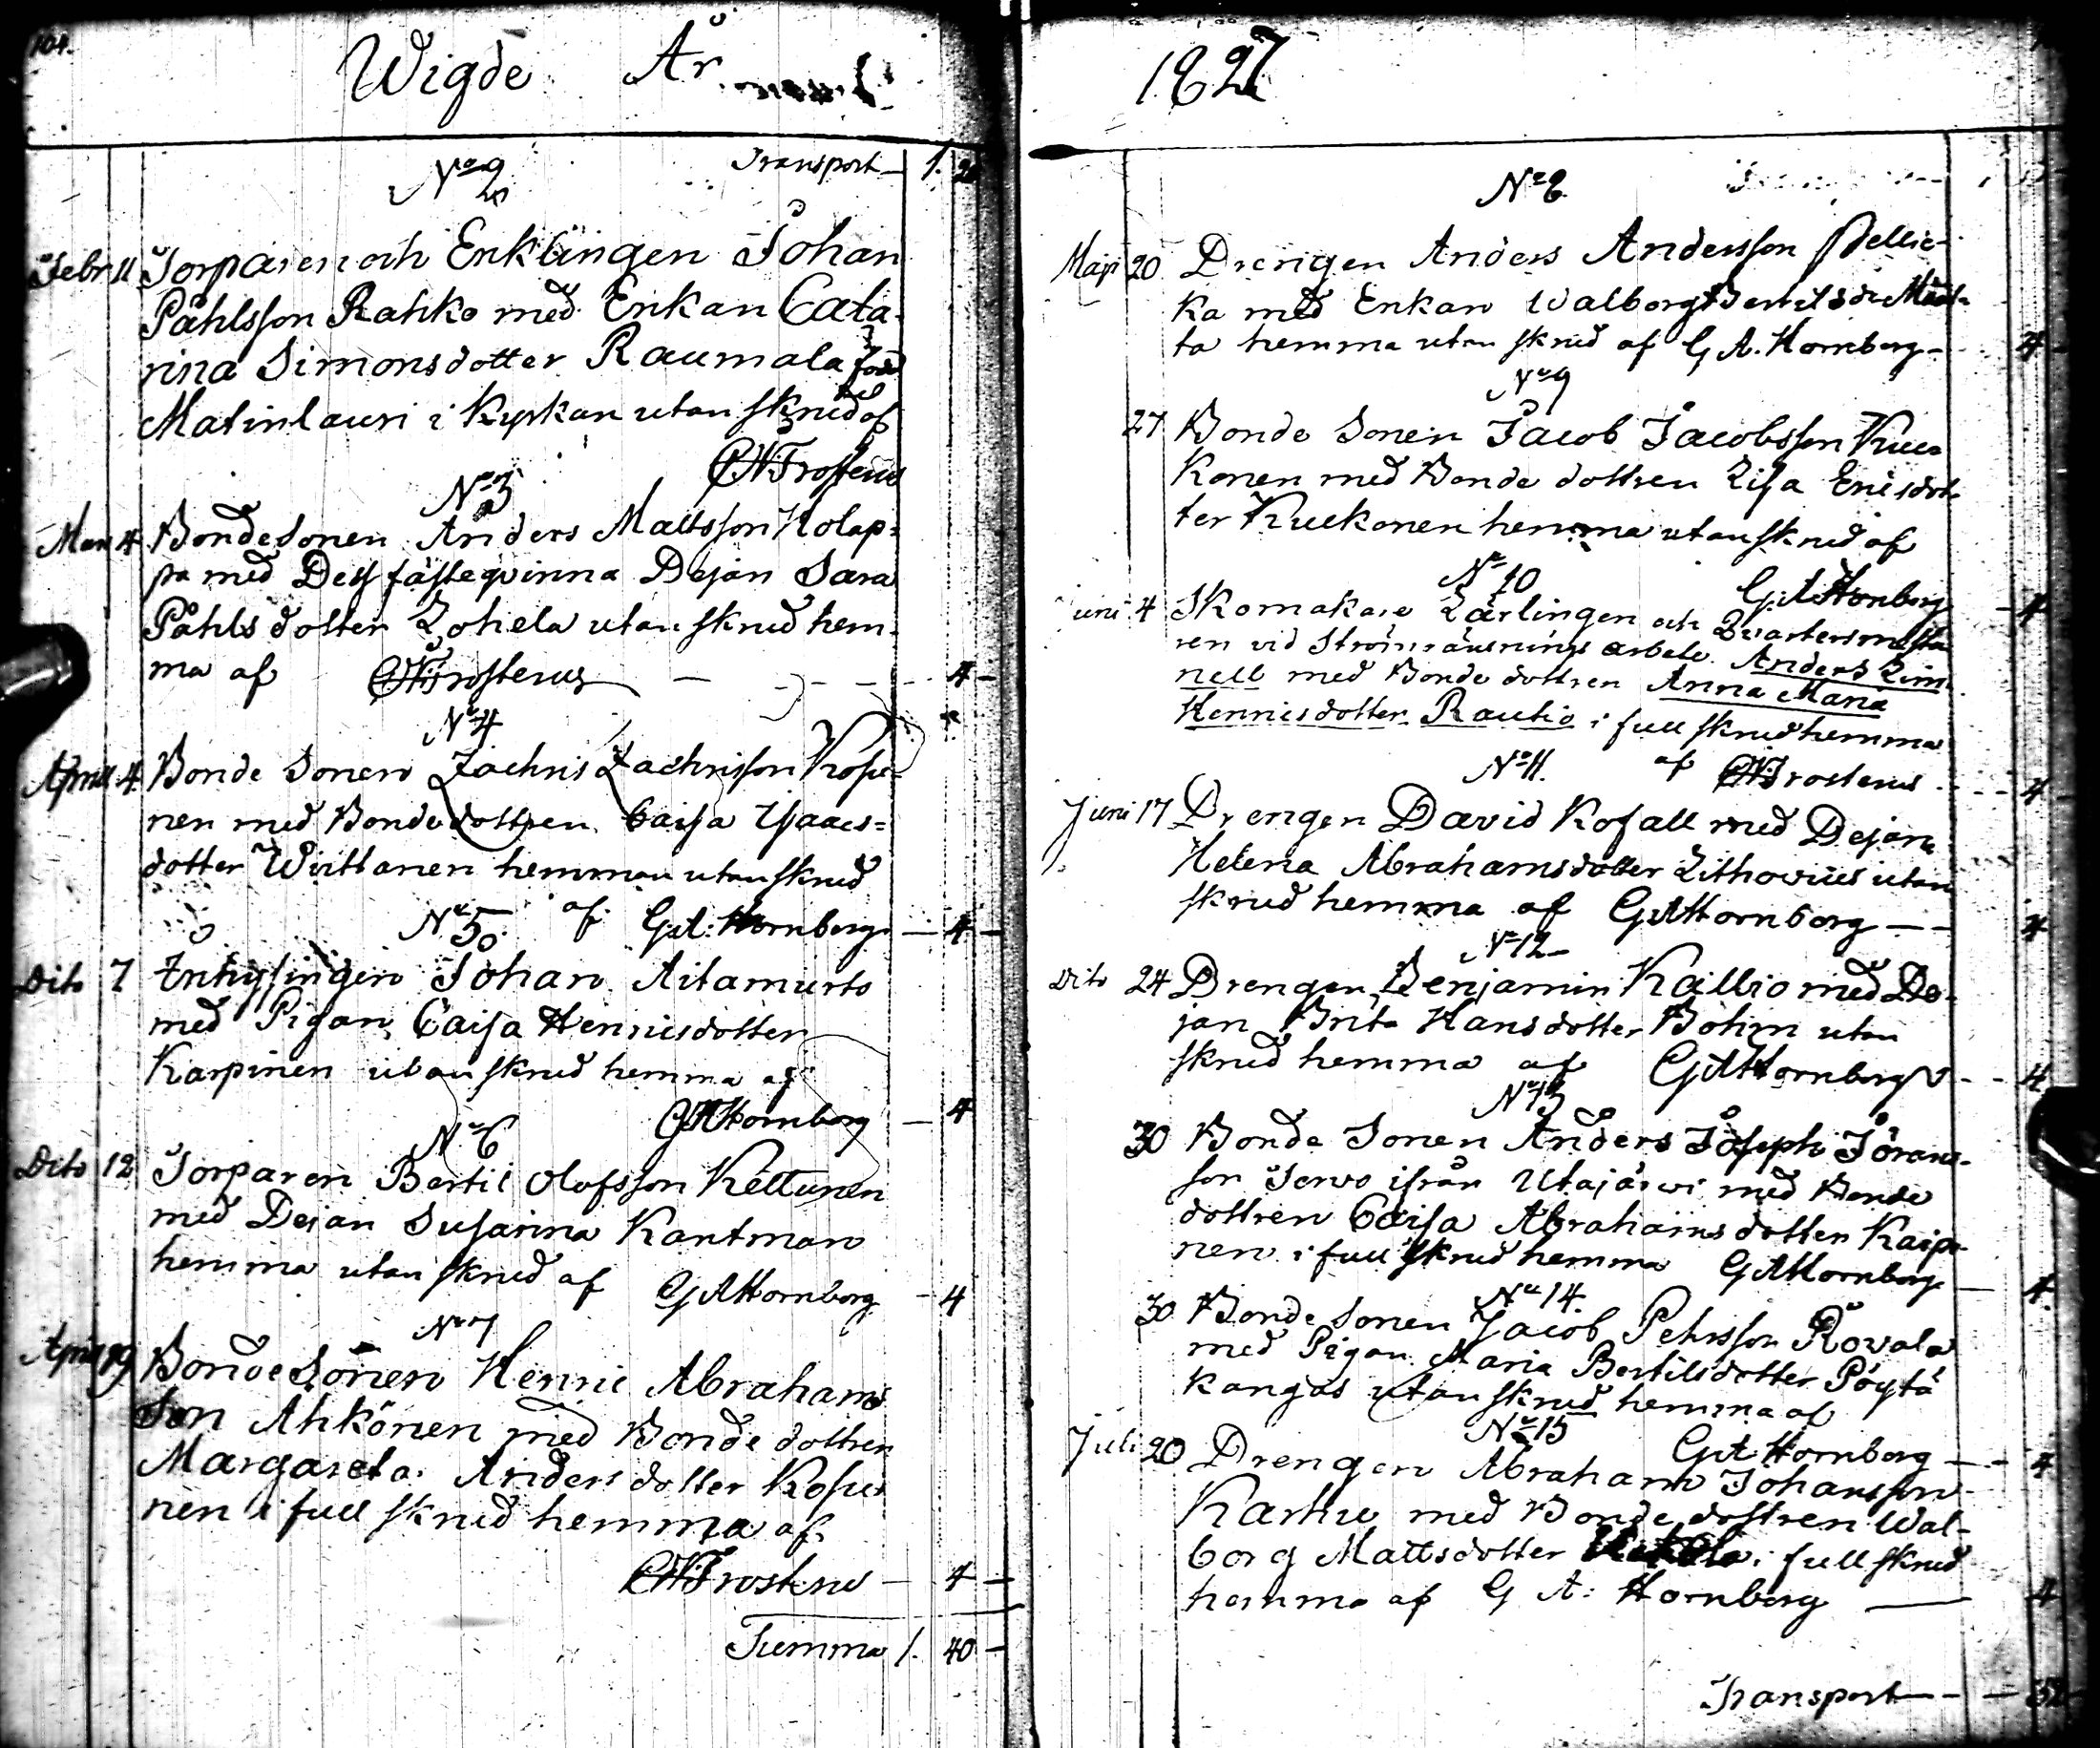 104.
Wigde År
Transport 1. 20
No 2
Febr 11 Torparen och Enklingen Johan
Påhlsson Rahko med Enkan Cata-
rina Simonsdotter Raumala född
Matinlauri i Kyrkan utan skrud af
CNFrosterus
No 3
Mars 4 BondeSonen Anders Mattsson Holap-
pa med Dess fästeqvinna Dejan Sara
Påhlsdotter Lohela utan skrud hem-
ma af CNFrosterus 4
No 4
Aprill 4 Bonde Sonen Zachris Zachrisson Kosu-
nen med Bonde dottren Caisa Isaacs=
dotter Wiittanen hemma utan skrud
af G:A: Hornborg 4
No 5
Dito 7 Inhysingen Johan Aitamurto
med Pigan Caisa Henricsdotter
Karpinen utan skrud hemma af
GAHornborg 4
No 6
Dito 12 Torparen Bertil Olofsson Kettunen
med Dejan Susanna Kantman
hemma utan skrud af GAHornborg 4
No 7
April 19 BondeSonen Henric Abrahams
Son Ahkönen med Bonde dottren
Margareta Anders dotter Kosu-
nen i full skrud hemma af
CNFrosterus 4
Summa 1. 40
1827
No 8.
Maji 20 Drengen Anders Andersson Pellic-
ka med Enkan Walborg Bertilsdr Määt-
ta hemma utan skrud af G A. Hornborg 4
No 9
27 Bonde Sonen Jacob Jacobsson Kuc-
konen med Bonde dottren Lisa Ericsdot-
ter Kuckonen hemma utan skrud af
GAHornborg 4
No 10
Juni 4 Skomakare Lärlingen och Qvartersmästa
ren vid Strömränsnings arbete Anders Lim-
nell med Bonde dottren Anna Maria
Henricsdotter Rautio i full skrud hemma
af CNFrosterus 4
No 11.
Juni 17 Drengen David Kofall med Dejan
Helena Abrahamsdotter Lithovius utan
skrud hemma af GAHornborg 4
No 12
Dito 24 Drengen Benjamin Kallio med De-
jan Brita Hansdotter Böhm utan
skrud hemma af GAHornborg 4
No 13
30 Bonde Sonen Anders Joseph Jörans-
son Servo ifrån Utajärvi med Bonde
dottren Caisa Abrahams dotter Kaipa-
nen i full skrud hemma GAHornborg 4.
No 14.
30 Bonde Sonen Jacob Pehrsson Rovala
med Pigan Maria Bertilsdotter Pöytä
kangas utan skrud hemma af
GAHornborg 4
No 15
Juli 20 Drengen Abraham Johansson
Karhu med Bonde dottren Wal-
borg Mattsdotter i full skrud
hemma af G A: Hornborg 4
Transport 32